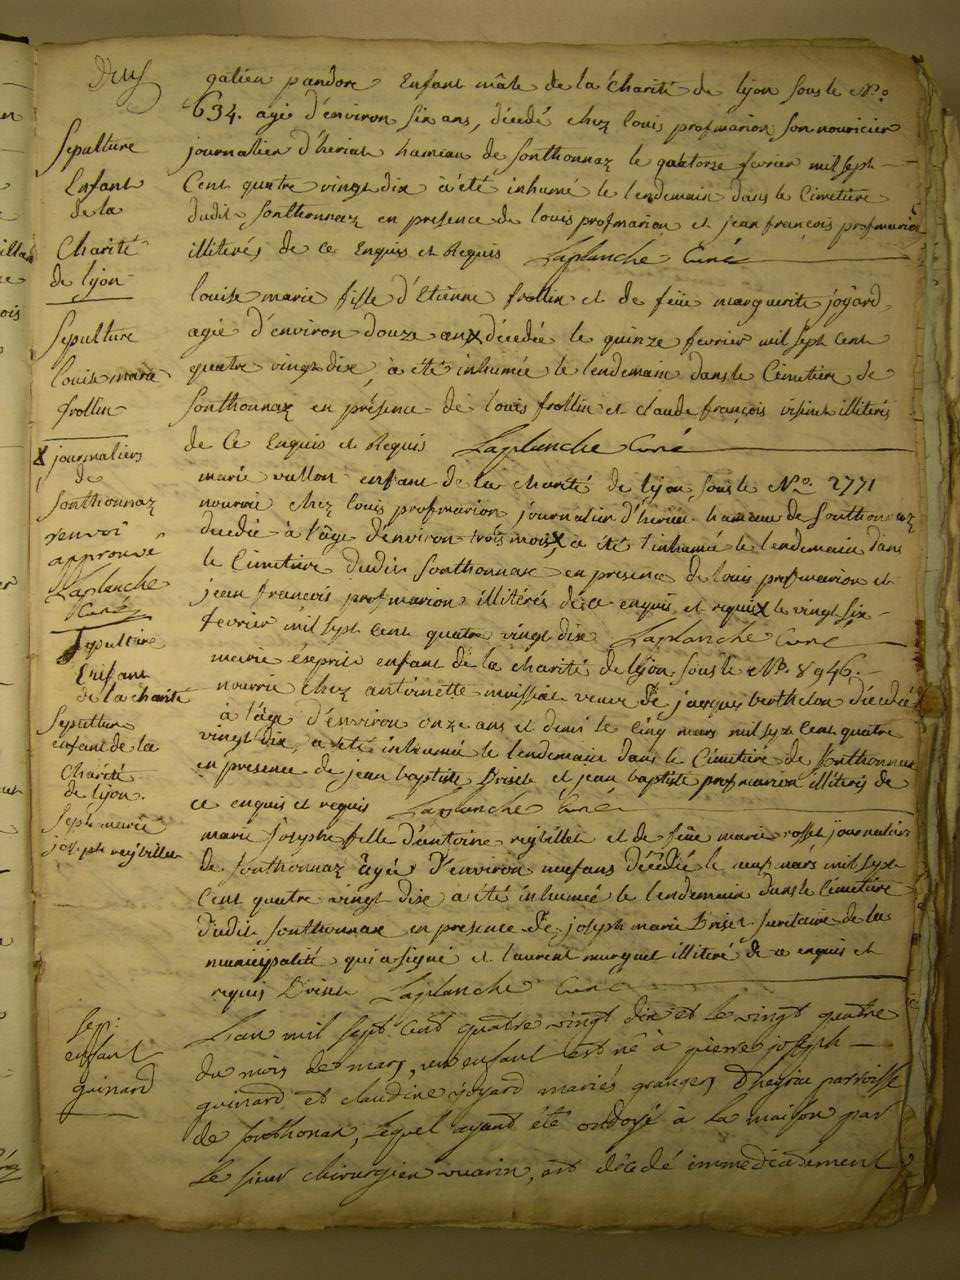 Deux
galien pandore Enfant mâle de la Charité de lyon sous le N.o
634. agé d'environ six ans, décédé chez louis profmarion son nouricier
Sepulture
journalier d'hériat hameau de sonthonnaz le quatorse fevrier mil sept
Enfant
Cent quatre vingt dix a été inhumé le lendemain dans le Cimetière
de la
dudit sonthonnaz en presence de louis profmarion et jean françois profmarion
Charité
illiterés de ce Enquis et Requis Laplanche Curé
de lyon
louise marie fille d'Etienne frollin et de feüe marguerite joyard
Sepulture
agée d'environ douze ans décédée le quinze fevrier mil sept cent
louise marie
quatre vingt dix, a été inhumée le lendemain dans le Cémetière de
frollin
sonthonnaz en présence de louis frollin et claude françois illiterés
de Ce Enquis et Requis Laplanche Curé
x journaliers
de
sonthonnaz
renvoi
approuvé
Laplanche
Curé
marie vullon enfant de la charité de lyon sous le N.o 2771
nourrie chez louis profmarion journalier d'hériat hameau de sonthonnaz
décédée à l'âge d'environ trois mois, a été inhumée le lendemain dans
le Cimetière dudit sonthonnax en presence de louis profmarion et
jean francois profmarion illitérés de ce enquis et requis le vingt six
fevrier mil sept cent quatre vingt dix Laplanche curé
Sepulture
Enfant
de la charité
marie esprit enfant de la charité de lyon sous le N.o 8946.
nourrie chez antoinette moissat veuve de jacques berthelon décédée
Sepulture
à l'âge d'environ onze ans et demi le cinq mars mil sept cent quatre
enfant de la
vingt dix, a été inhumée le lendemain dans le Cimetière de sonthonnax
Charité
en presence de jean baptiste Briset et jean baptiste profmarion illitérés de
de lyon.
ce enquis et requis Laplanche Curé
Sep.h marie
marie Josephe fille d'antoine reybillet et de feüe marie rosset journalier
joseph reybillet
de sonthonnax âgée d'environ neuf ans décédée le neuf mars mil sept
Cent quatre vingt dix a été inhumée le lendemain dans le Cémetière
dudit sonthonnax en presence de joseph marie Briset secretaire de la
municipalité qui a signé et laurent murguet illitéré de ce enquis et
requis Briset Laplanche Curé
Sep:
L'an mil sept cent quatre vingt dix et le vingt quatre
enfant
du mois de mars, un enfant est né à pierre joseph
guinard
guinard et claudine joyard mariés grangers d'heyria parroisse
de sonthonax, lequel ayant été ondoyé à la maison par
le sieur chirurgien vuarin, est décédé immédiatement